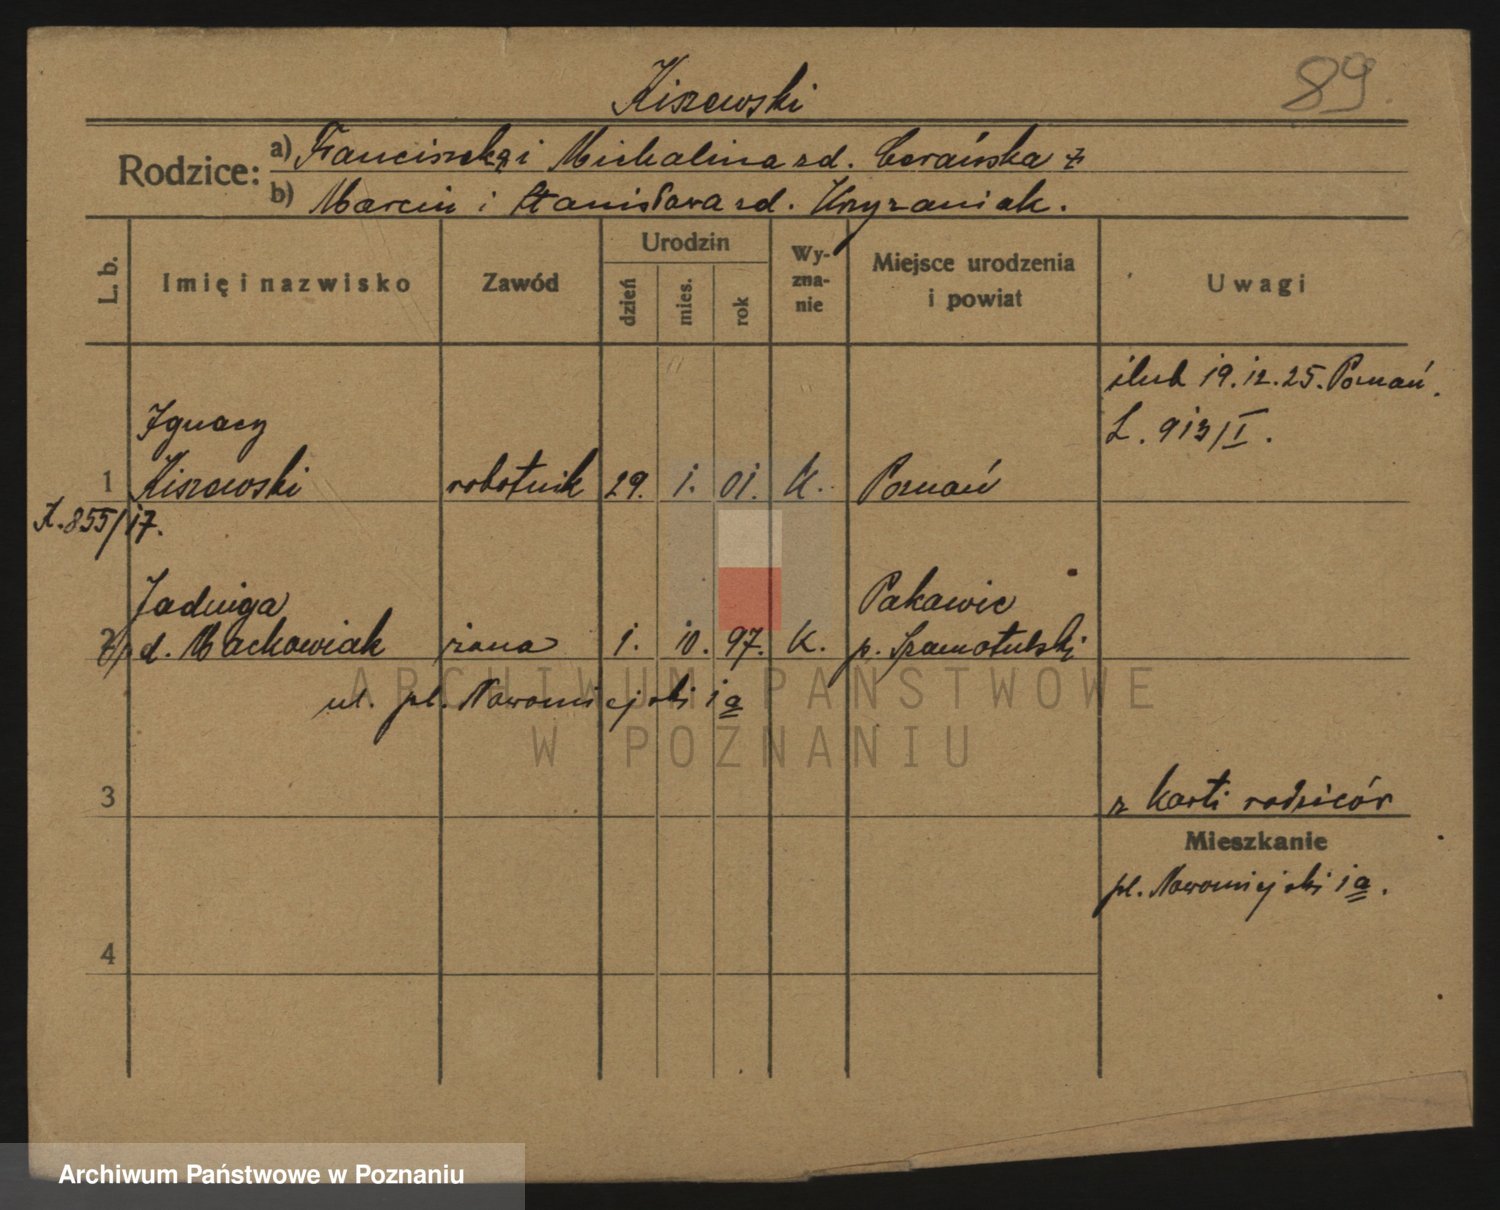 Kiszewski
89.
Rodzice: a) Franciszek i Michalina zd. Cerańska
b) Marcin i Stanisława zd. Krzyzaniak.
L. b. Imię i nazwisko Zawód Urodzin dzień mies. rok Wyzna-nie Miejsce urodzenia i powiat Uwagi
ślub 19.12.25. Poznań.
L. 913/I.
Ignacy
1 Kiszewski robotnik 29. 1. 01. K. Poznań
K. 855/17.
Jadwiga Pakawie
2 d. Maćkowiak żona 1. 10. 97. K. p. Szamotulski
ul. pl. Nowomiejski 1a
3 z karti rodziców
Mieszkanie
pl. Nowomiejski 1a.
4
ARCHIWUM PAŃSTWOWE
W POZNANIU
Archiwum Państwowe w Poznaniu